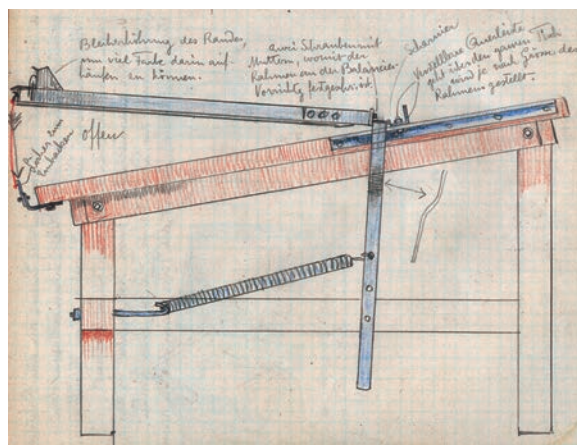 Blecherhöhung des Randes,
um viel Farbe darin auf-
häufen zu können.
zwei Schrauben mit
Muttern, womit der
Rahmen an der Balancier-
Vorrichtg festgeschr. ist
Scharnier
Verstellbare Querleiste
geht über den ganzen Tisch
wird je nach Grösse des
Rahmens gestellt.
offen
zum